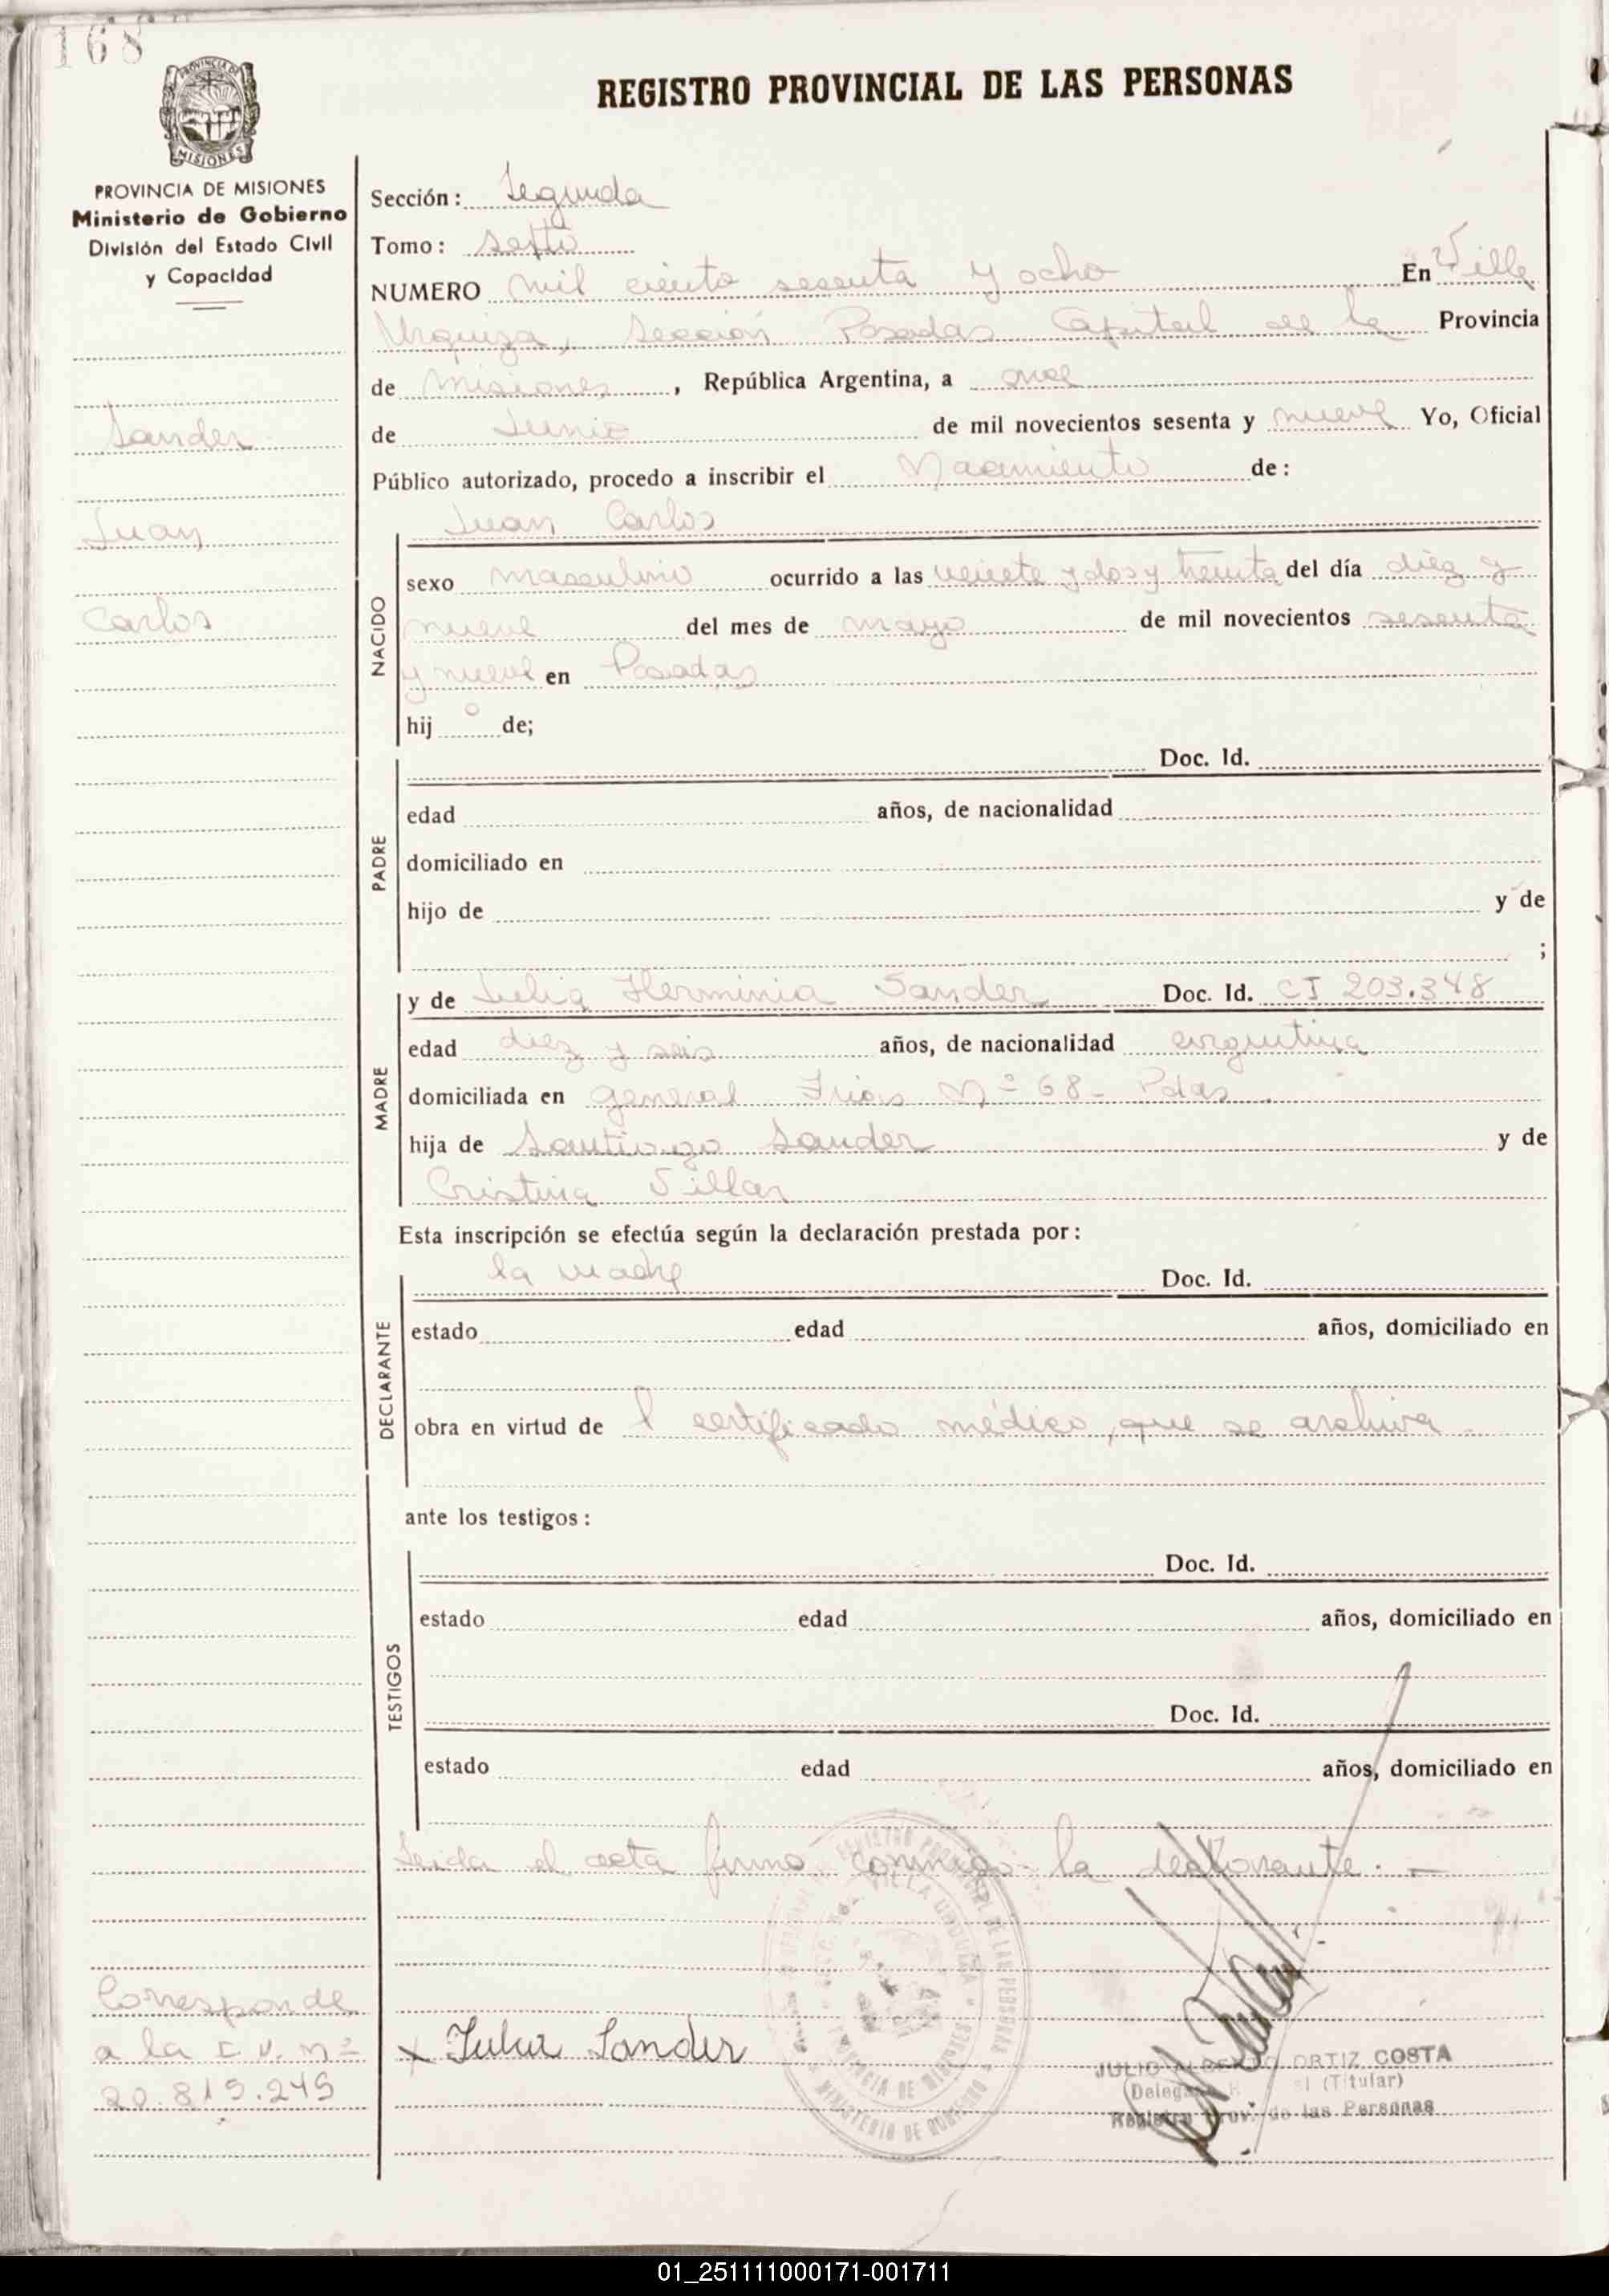 168
REGISTRO PROVINCIAL DE LAS PERSONAS
PROVINCIA DE MISIONES
Ministerio de Gobierno
División del Estado Civil
y Capacidad
Sander
Juan
Carlos
Sección: Segunda
Tomo: Sexto
NUMERO mil ciento sesenta y ocho En Villa
Urquiza, Sección Posadas Capital de la Provincia
de Misiones, República Argentina, a once
de Junio de mil novecientos sesenta y nueve Yo, Oficial
Público autorizado, procedo a inscribir el Nacimiento de:
Juan Carlos
NACIDO
sexo masculino ocurrido a las veinte y dos y treinta del día diez y
nueve del mes de mayo de mil novecientos sesenta
y nueve en Posadas
hij o de;
PADRE
Doc. Id.
edad años, de nacionalidad
domiciliado en
hijo de y de
;
MADRE
y de Julia Herminia Sander Doc. Id. CI 203.348
edad diez y seis años, de nacionalidad argentina
domiciliada en general Frias Nº 68 - Pdas.
hija de Santiago Sander y de
Cristina Villar
Esta inscripción se efectúa según la declaración prestada por:
DECLARANTE
la madre Doc. Id.
estado edad años, domiciliado en
obra en virtud de l certificado médico, que se archiva.
ante los testigos:
TESTIGOS
Doc. Id.
estado edad años, domiciliado en
Doc. Id.
estado edad años, domiciliado en
Leida el acta firma conmigo la declarante. -
Corresponde
a la Nº
20.819.249
x Julia Sander
VILLA URQUIZA
PROVINCIA DE MISIONES
MINISTERIO DE GOBIERNO
JULIO ALBERTO ORTIZ COSTA
(Titular)
Registro Prov. de las Personas
01_251111000171-001711